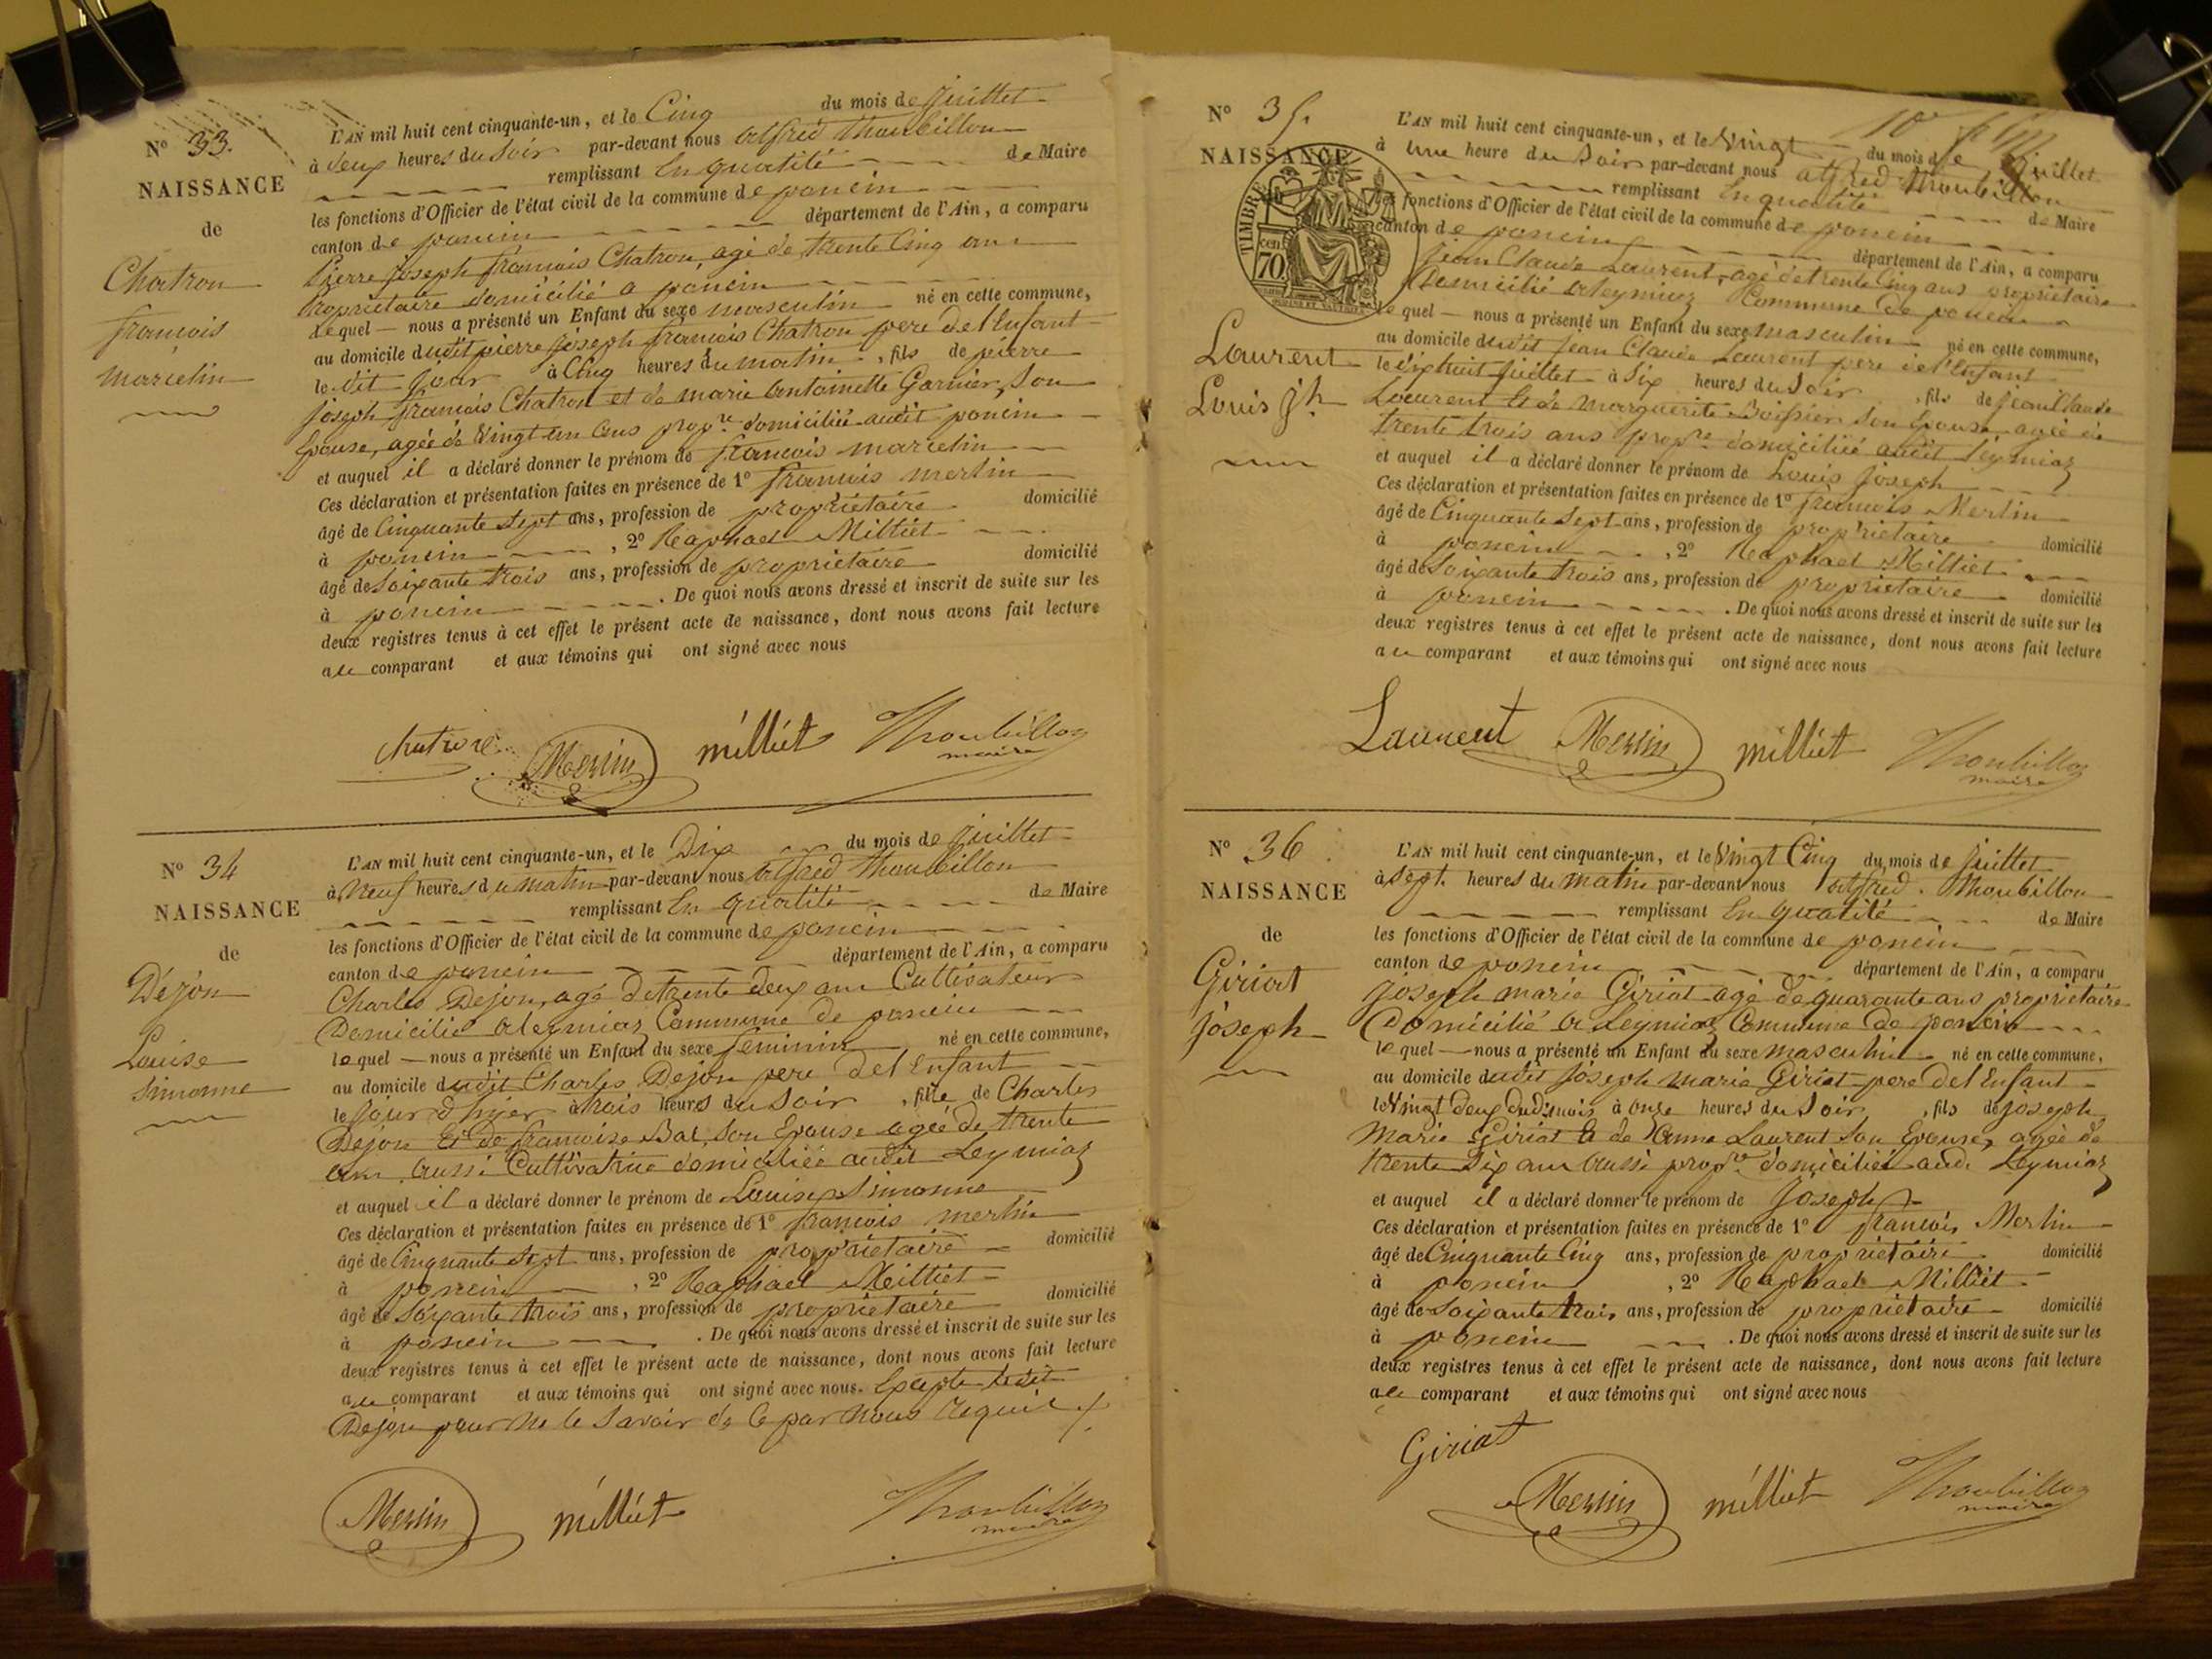 N° 33.
NAISSANCE
de
Chatron
françois
marcelin
L'AN mil huit cent cinquante-un, et le Cinq du mois de Juillet
à deux heures du Soir par-devant nous alfred thoubillon
remplissant En qualité de Maire
les fonctions d'Officier de l'état civil de la commune de poncin
canton de poncin département de l'Ain, a comparu
Pierre joseph françois Chatron, agé de trente Cinq ans
Propriétaire domicilié a poncin
Lequel nous a présenté un Enfant du sexe masculin né en cette commune,
au domicile dudit pierre joseph françois Chatron pere de l'Enfant
le dit jour à Cinq heures du matin, fils de pierre
joseph françois Chatron et de marie antoinette Garnier, Son
Epouse, agée de Vingt un ans propre domiciliée audit poncin
et auquel il a déclaré donner le prénom de françois marcelin
Ces déclaration et présentation faites en présence de 1° françois merlin
âgé de Cinquante Sept ans, profession de propriétaire domicilié
à poncin, 2° Raphael Milliet
âgé de Soixante trois ans, profession de propriétaire domicilié
à poncin. De quoi nous avons dressé et inscrit de suite sur les
deux registres tenus à cet effet le présent acte de naissance, dont nous avons fait lecture
au comparant et aux témoins qui ont signé avec nous
Chatron Merlin milliet Thoubillon
maire
N° 34
NAISSANCE
de
Déjon
Louise
Simonne
L'AN mil huit cent cinquante-un, et le Dix du mois de Juillet
à Neuf heures du matin par-devant nous alfred thoubillon
remplissant En qualité de Maire
les fonctions d'Officier de l'état civil de la commune de poncin
canton de poncin département de l'Ain, a comparu
Charles Dejon, agé de trente deux ans Cultivateur
Domicilié a Leymiaz Commune de poncin
lequel nous a présenté un Enfant du sexe feminin né en cette commune,
au domicile dudit Charles Dejon pere de l'Enfant
le jour d'hyer à trois heures du Soir, fille de Charles
Dejon Et de françoise Bal, son Epouse agée de trente
ans aussi Cultivatrice domiciliée audit Leymiaz
et auquel il a déclaré donner le prénom de Louise Simonne
Ces déclaration et présentation faites en présence de 1° françois merlin
âgé de Cinquante Sept ans, profession de propriétaire domicilié
à poncin, 2° Raphael Milliet
âgé de Soixante trois ans, profession de propriétaire domicilié
à poncin. De quoi nous avons dressé et inscrit de suite sur les
deux registres tenus à cet effet le présent acte de naissance, dont nous avons fait lecture
au comparant et aux témoins qui ont signé avec nous. Excepté ledit
Dejon pour ne le Savoir de ce par nous requis
Merlin milliet Thoubillon
maire
N° 35.
NAISSANCE
TIMBRE
cen
70
Laurent
Louis jh
L'AN mil huit cent cinquante-un, et le Vingt du mois de Juillet
à Une heure du Soir par-devant nous alfred thoubillon
remplissant En qualité de Maire
les fonctions d'Officier de l'état civil de la commune de poncin
canton de poncin département de l'Ain, a comparu
Jean Claude Laurent, agé de trente Cinq ans propriétaire
Domicilié a Leymiaz Commune de poncin
lequel nous a présenté un Enfant du sexe masculin né en cette commune,
au domicile dudit Jean Claude Laurent pere de l'Enfant
le dix huit juillet à Six heures du Soir, fils de jean Claude
Laurent Et de Marguerite Boissier son Epouse agée de
trente trois ans propre domiciliée audit Leymiaz
et auquel il a déclaré donner le prénom de Louis joseph
Ces déclaration et présentation faites en présence de 1° françois Merlin
âgé de Cinquante Sept ans, profession de propriétaire domicilié
à poncin, 2° Raphael Milliet
âgé de Soixante trois ans, profession de propriétaire domicilié
à poncin. De quoi nous avons dressé et inscrit de suite sur les
deux registres tenus à cet effet le présent acte de naissance, dont nous avons fait lecture
au comparant et aux témoins qui ont signé avec nous
Laurent Merlin milliet Thoubillon
maire
N° 36
NAISSANCE
de
Giriat
joseph
L'AN mil huit cent cinquante-un, et le Vingt Cinq du mois de Juillet
à Sept heures du matin par-devant nous alfred thoubillon
remplissant En qualité de Maire
les fonctions d'Officier de l'état civil de la commune de poncin
canton de poncin département de l'Ain, a comparu
joseph marie Giriat agé de quarante ans propriétaire
Domicilié a Leymiaz Commune de poncin
lequel nous a présenté un Enfant du sexe masculin né en cette commune,
au domicile dudit joseph marie Giriat pere de l'Enfant
le Vingt deux dud. mois à onze heures du Soir, fils de joseph
Marie Giriat Et de Anne Laurent Son Epouse, agée de
trente Six ans aussi propre domiciliée aud. Leymiaz
et auquel il a déclaré donner le prénom de joseph
Ces déclaration et présentation faites en présence de 1° françois Merlin
âgé de Cinquante Cinq ans, profession de propriétaire domicilié
à poncin, 2° Raphael Milliet
âgé de Soixante trois ans, profession de propriétaire domicilié
à poncin. De quoi nous avons dressé et inscrit de suite sur les
deux registres tenus à cet effet le présent acte de naissance, dont nous avons fait lecture
au comparant et aux témoins qui ont signé avec nous
Giriat
Merlin milliet Thoubillon
maire